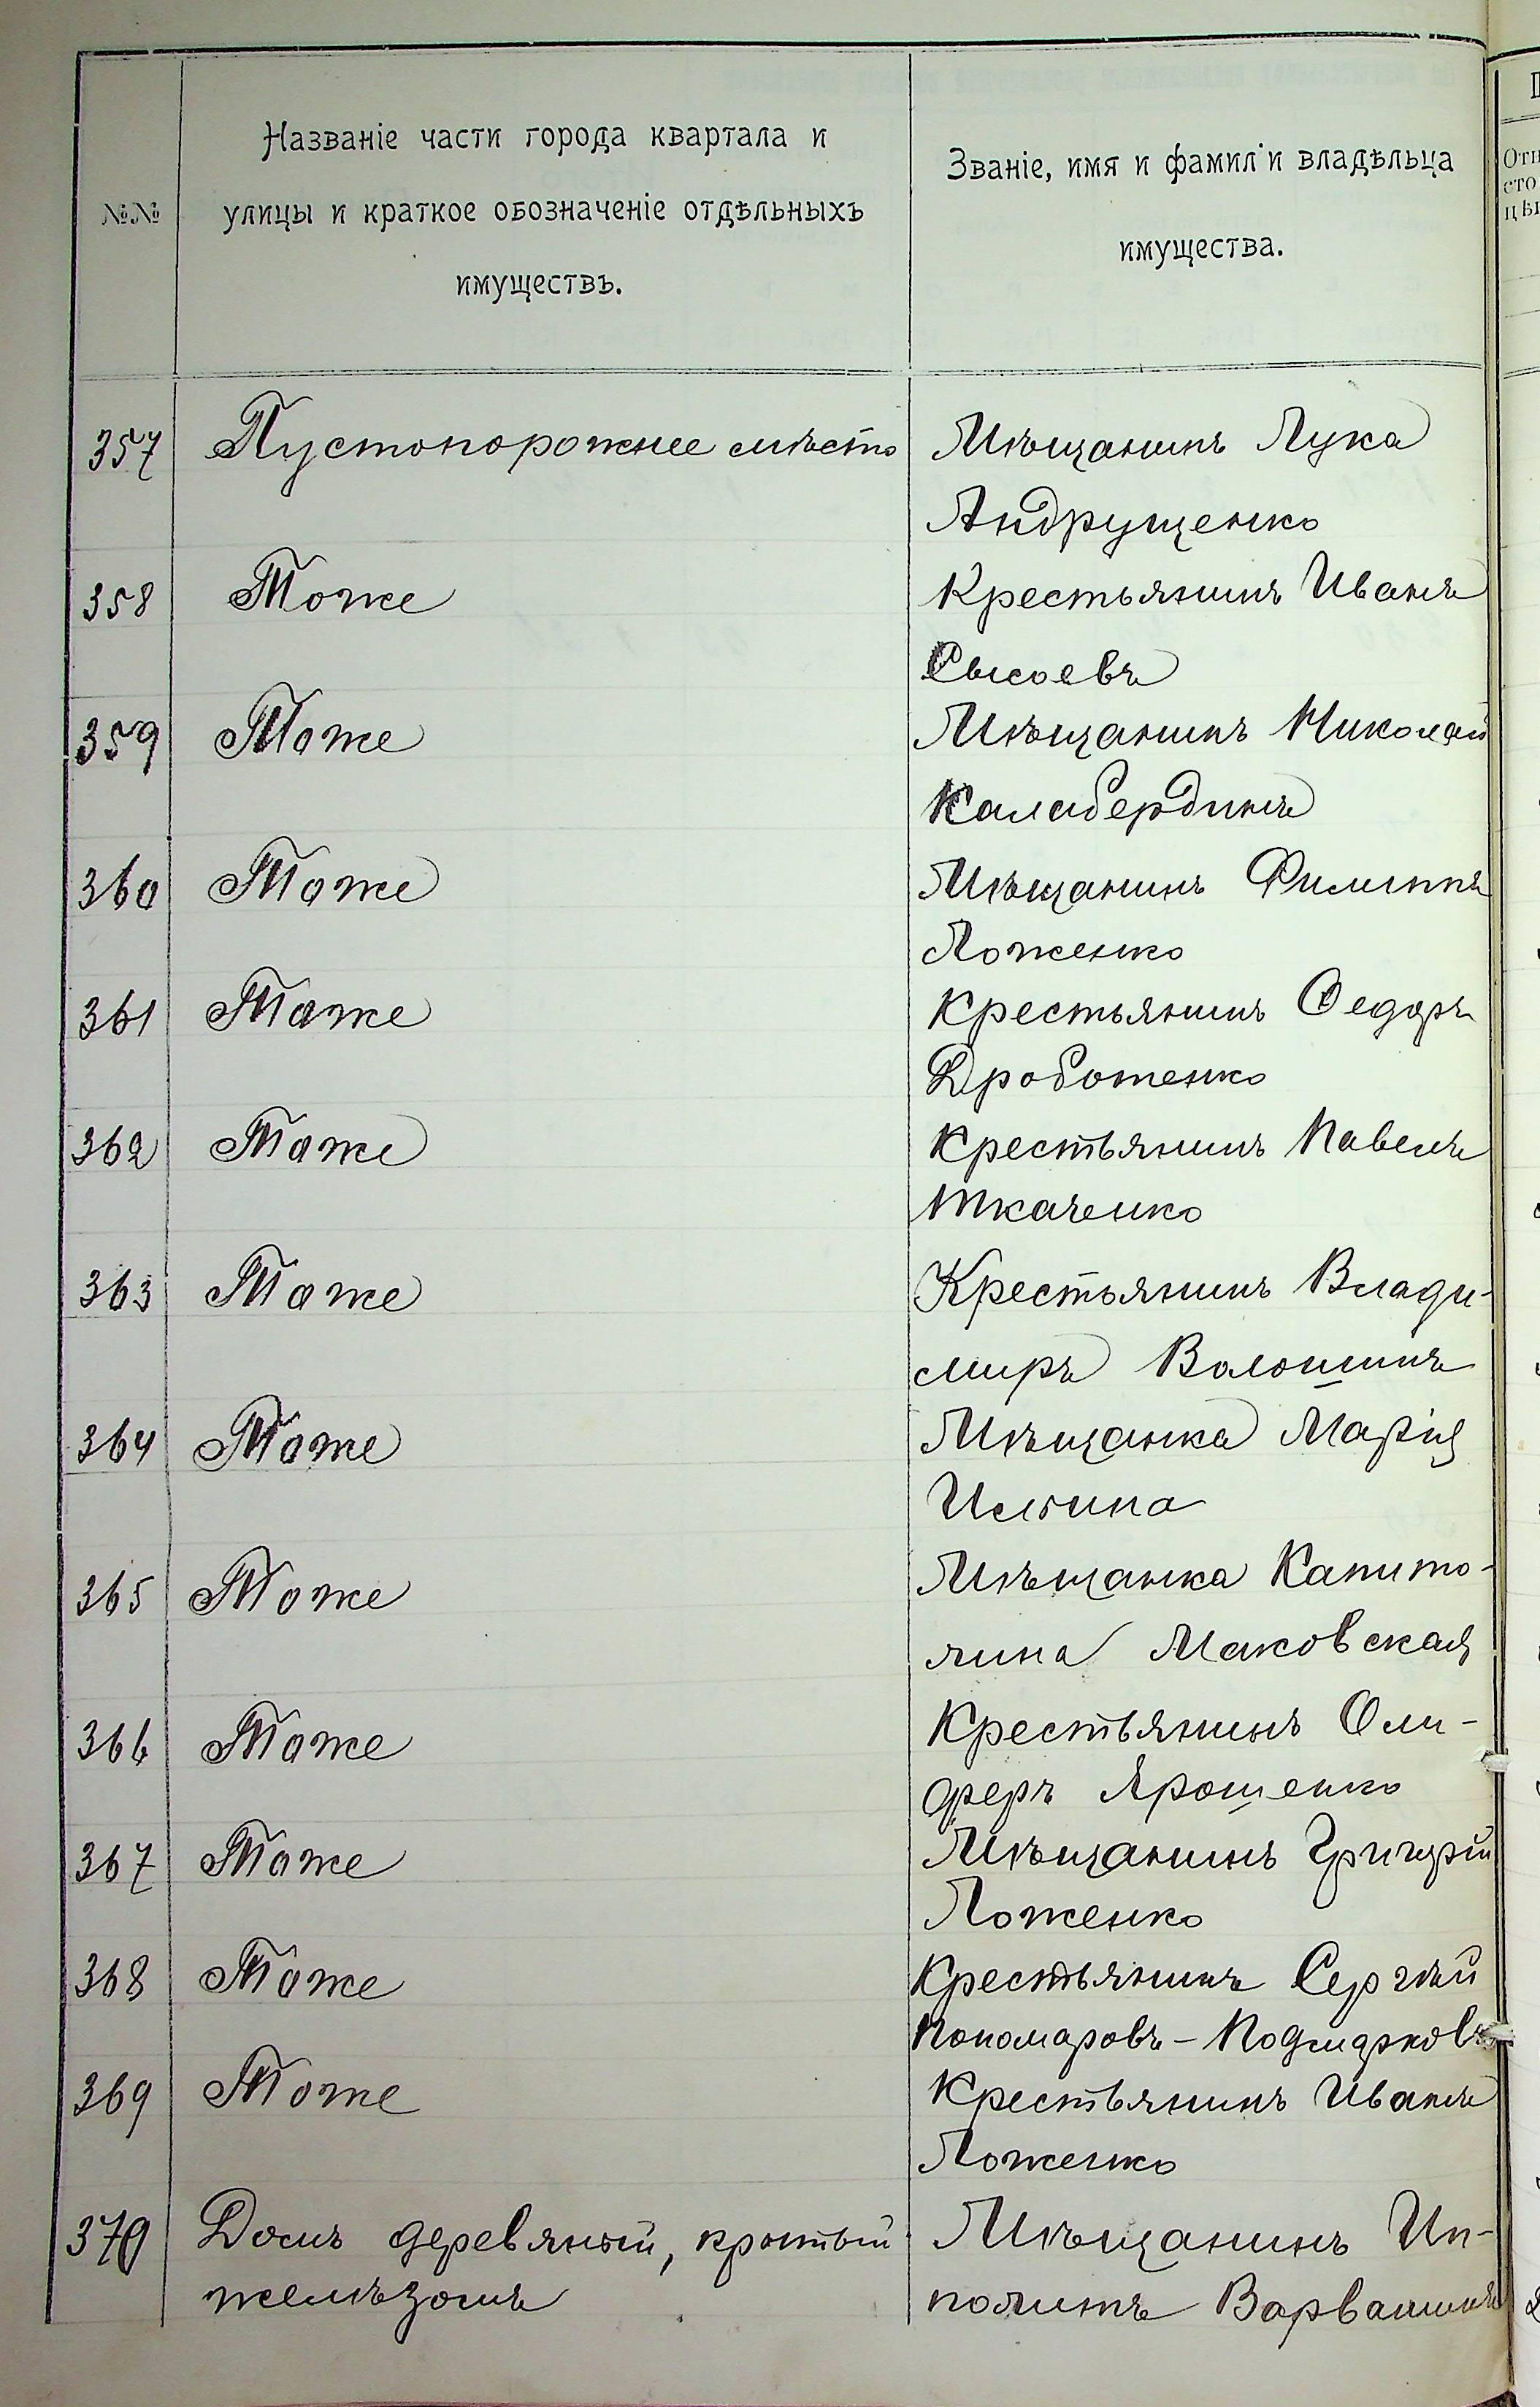 №№
Названіе части города квартала и
улицы и краткое обозначеніе отдѣльныхъ
имуществъ.
Званіе, имя и фамиліи владѣльца
имущества.
357 Пустопорожнее мѣсто Мѣщанинъ Лука
Андрущенко
358 Тоже Крестьянинъ Иванъ
Сысоевъ
359 Тоже Мѣщанинъ Николай
Калабердинъ
360 Тоже Мѣщанинъ Филиппъ
Ложенко
361 Тоже Крестьянинъ Федоръ
Дроботенко
362 Тоже Крестьянинъ Павелъ
Ткаченко
363 Тоже Крестьянинъ Влади-
миръ Волошинъ
364 Тоже Мѣщанка Марія
Ильина
365 Тоже Мѣщанка Капито-
лина Маковская
366 Тоже Крестьянинъ Оли-
феръ Ярошенко
367 Тоже Мѣщанинъ Григорій
Ложенко
368 Тоже Крестьянинъ Сергѣй
Пономаровъ-
369 Тоже Крестьянинъ Иванъ
Ложенко
370 Домъ деревяный, крытый Мѣщанинъ Ип-
желѣзомъ политъ